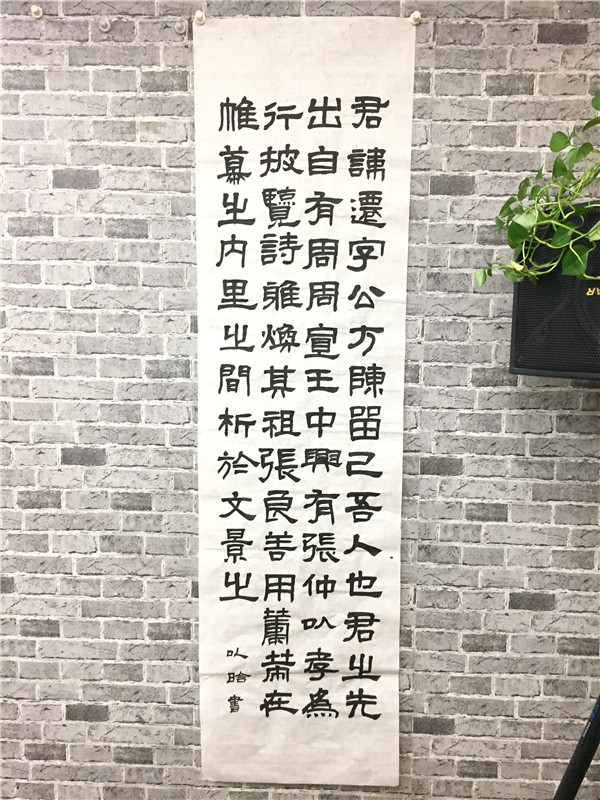 君諱遷字公方陳留己吾人也君之先
出自有周周宣王中興有張仲以孝為
行披覽詩雅煥其祖張良善用籌策在
帷幕之内里之間析於文景之
以晗書